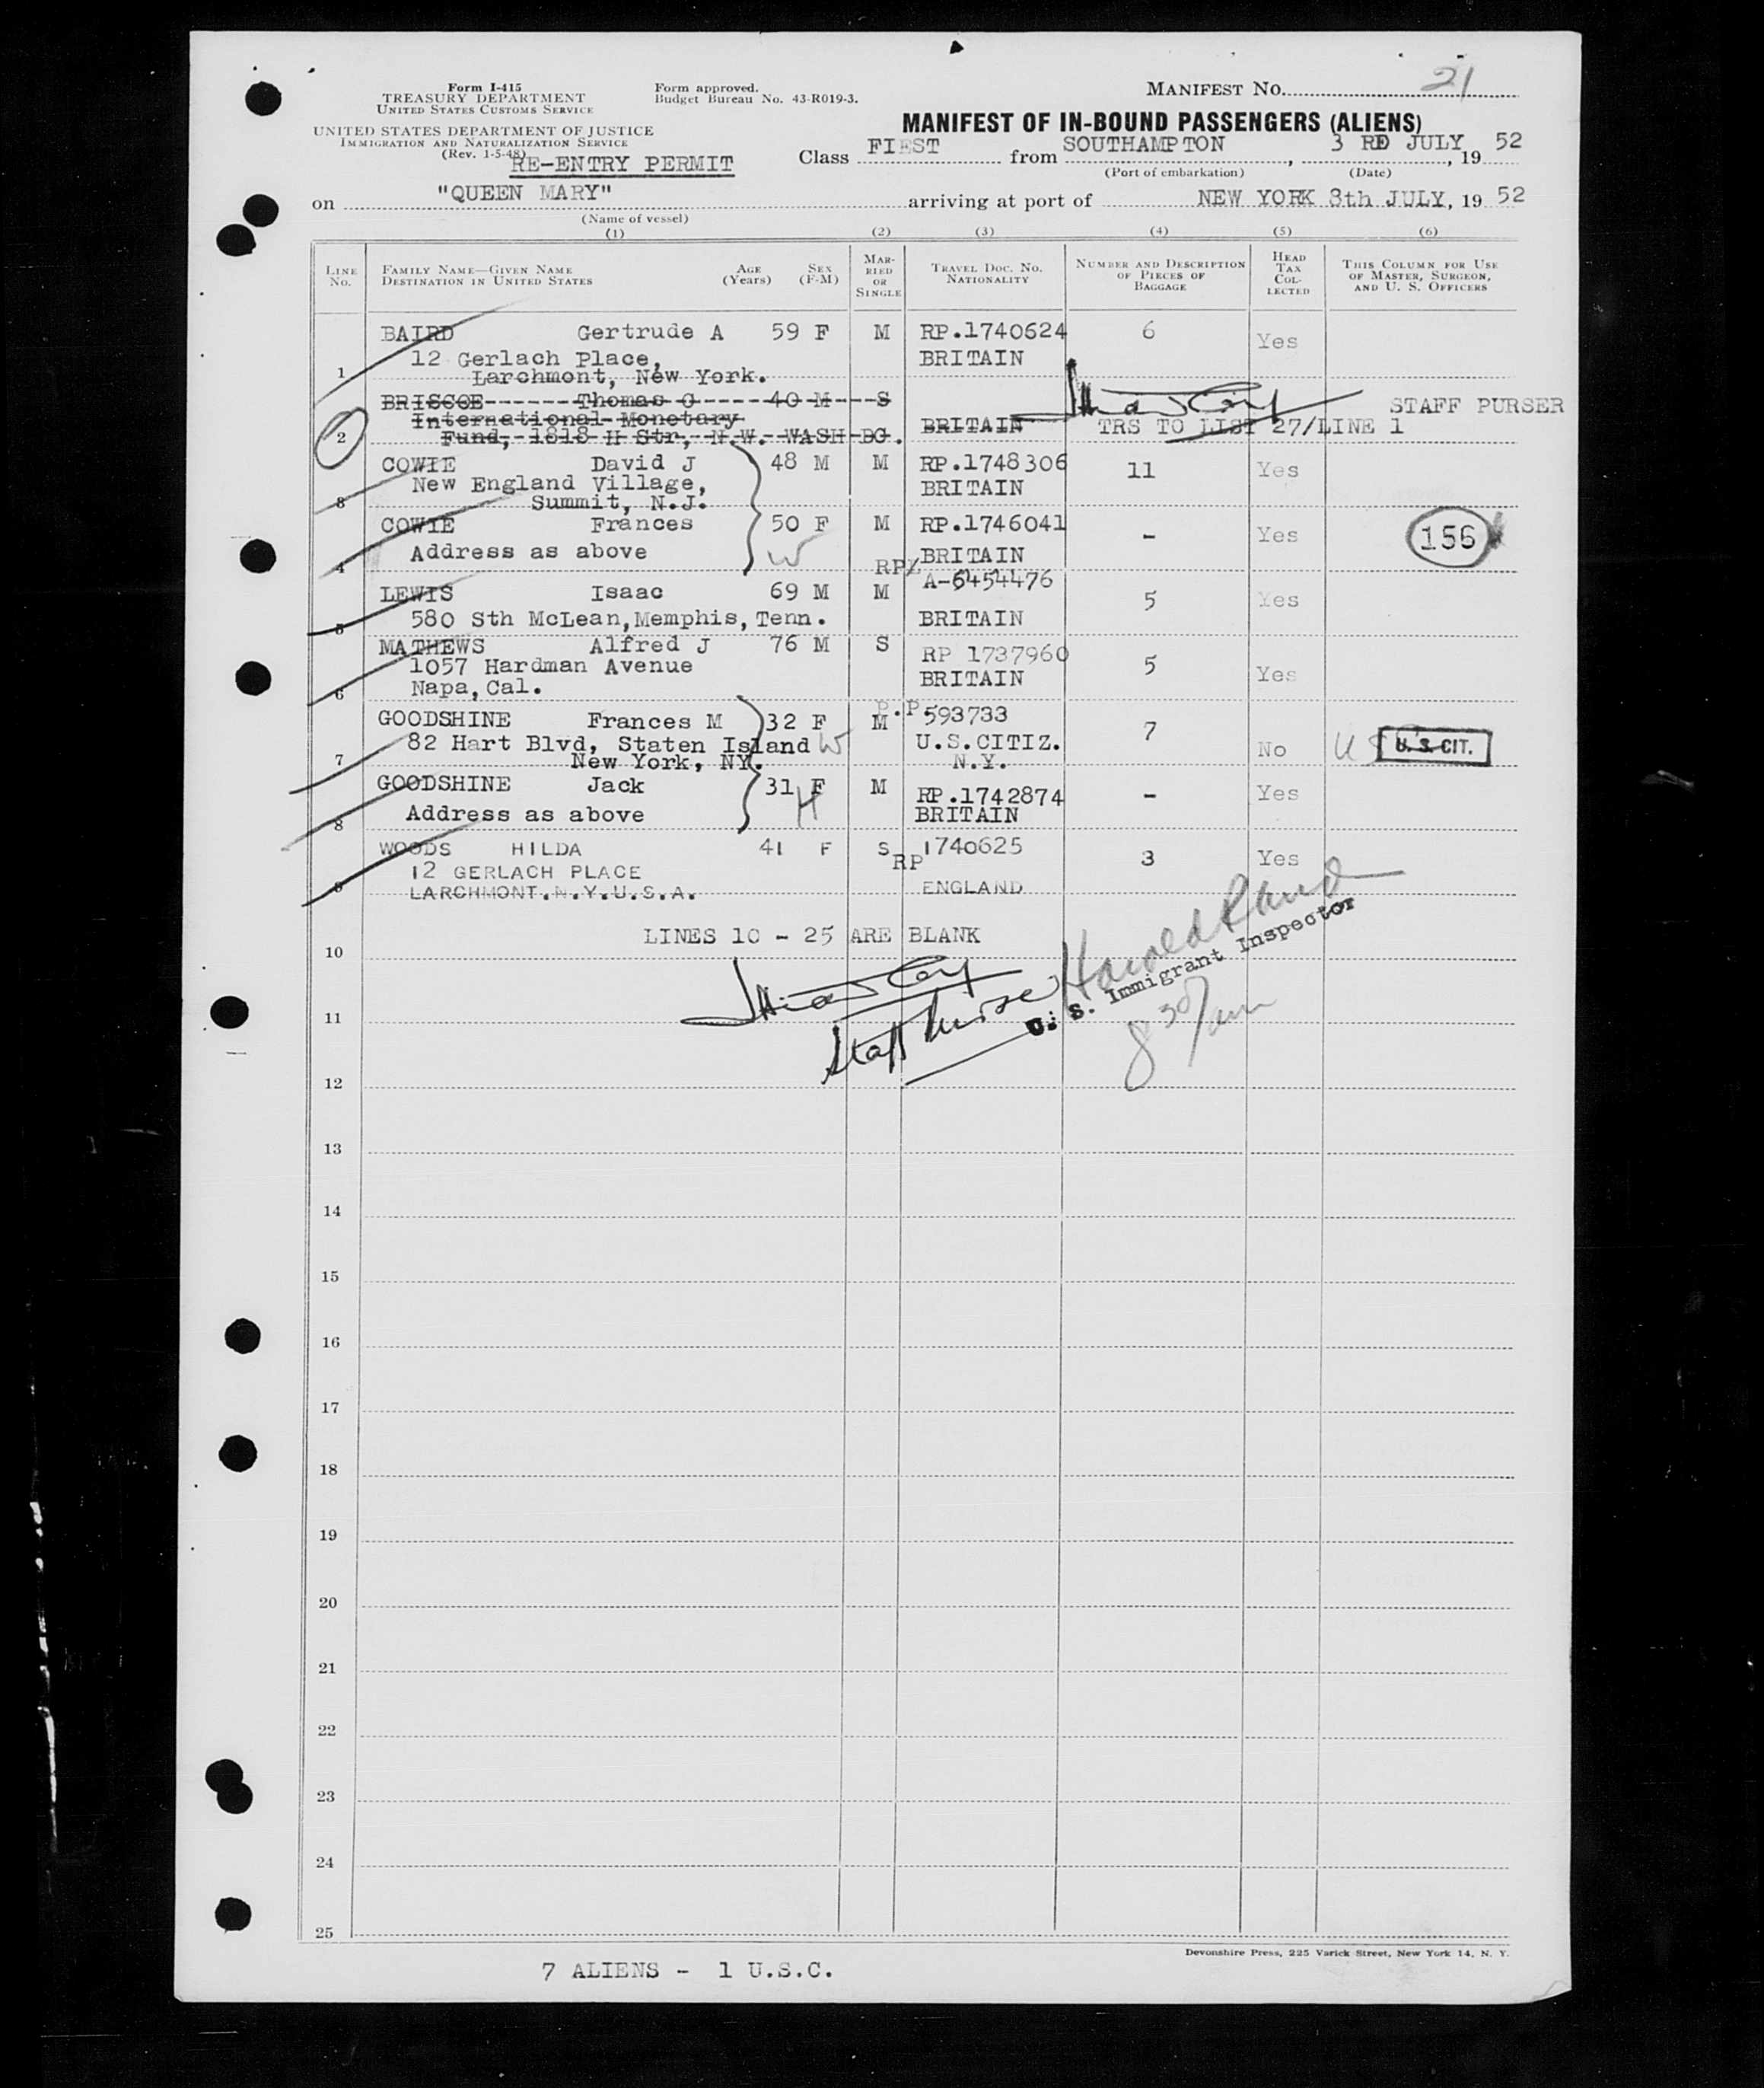 Form I-415
TREASURY DEPARTMENT
UNITED STATES CUSTOMS SERVICE
UNITED STATES DEPARTMENT OF JUSTICE
IMMIGRATION AND NATURALIZATION SERVICE
(Rev. 1-5-48)
Form approved.
Budget Bureau No. 43-R019-3.
MANIFEST NO. 21
MANIFEST OF IN-BOUND PASSENGERS (ALIENS)
RE-ENTRY PERMIT
Class FIRST from SOUTHAMPTON, 3 RD JULY, 19 52
(Port of embarkation) (Date)
on "QUEEN MARY" arriving at port of NEW YORK 8th JULY, 19 52
(Name of vessel)
(1) (2) (3) (4) (5) (6)
LINE NO.
FAMILY NAME—GIVEN NAME
DESTINATION IN UNITED STATES
AGE (Years)
SEX (F-M)
MARRIED OR SINGLE
TRAVEL DOC. NO.
NATIONALITY
NUMBER AND DESCRIPTION OF PIECES OF BAGGAGE
HEAD TAX COLLECTED
THIS COLUMN FOR USE OF MASTER, SURGEON, AND U. S. OFFICERS
1 BAIRD Gertrude A 59 F M RP.1740624 6 Yes
12 Gerlach Place, BRITAIN
Larchmont, New York.
2 BRISCOE Thomas O 40 M S STAFF PURSER
International Monetary
Fund, 1818 H Str, N.W. WASH DC. BRITAIN TRS TO LIST 27/LINE 1
3 COWIE David J 48 M M RP.1748306 11 Yes
New England Village, BRITAIN
Summit, N.J.
4 COWIE Frances 50 F M RP.1746041 - Yes 156
Address as above W BRITAIN
5 LEWIS Isaac 69 M M RP/ A-6454476 5 Yes
580 Sth McLean, Memphis, Tenn. BRITAIN
6 MATHEWS Alfred J 76 M S RP 1737960 5 Yes
1057 Hardman Avenue BRITAIN
Napa, Cal.
7 GOODSHINE Frances M 32 F M P.P 593733 7 No US U.S. CIT.
82 Hart Blvd, Staten Island W U.S.CITIZ.
New York, NY. N.Y.
8 GOODSHINE Jack 31 F H M RP.1742874 - Yes
Address as above BRITAIN
9 WOODS HILDA 41 F S RP 1740625 3 Yes
12 GERLACH PLACE
LARCHMONT.N.Y.U.S.A. ENGLAND
LINES 10 - 25 ARE BLANK
Staff Purser
Harold Rand
U. S. Immigrant Inspector
8 30/am
10
11
12
13
14
15
16
17
18
19
20
21
22
23
24
25
Devonshire Press, 225 Varick Street, New York 14, N. Y.
7 ALIENS - 1 U.S.C.